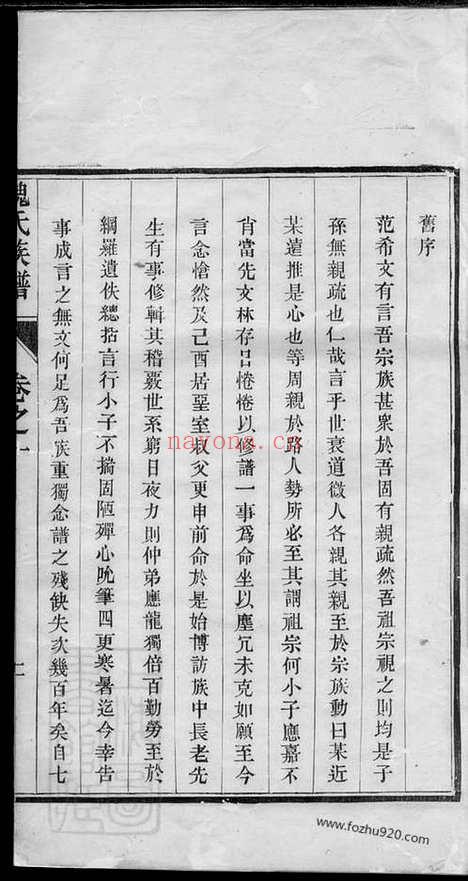 舊序
范希文有言吾宗族甚衆於吾固有親疏然吾祖宗視之則均是子
孫無親疏也仁哉言乎世衰道微人各親其親至於宗族動曰某近
某遠推是心也等周親於路人勢所必至其謂祖宗何小子應嘉不
肖當先文林存日惓惓以修譜一事爲命坐以塵冗未克如願至今
言念愴然及己酉居堊室叔父更申前命於是始博訪族中長老先
生有事修輯其稽覈世系窮日夜力則仲弟應龍獨倍百勤勞至於
綱羅遺佚總括言行小子不揣固陋殫心吮筆四更寒暑迄今幸告
事成言之無文何足爲吾族重獨念譜之殘缺失次幾百年矣自七
魏氏族譜
卷之一
nayona.cn
www.fozhu920.com